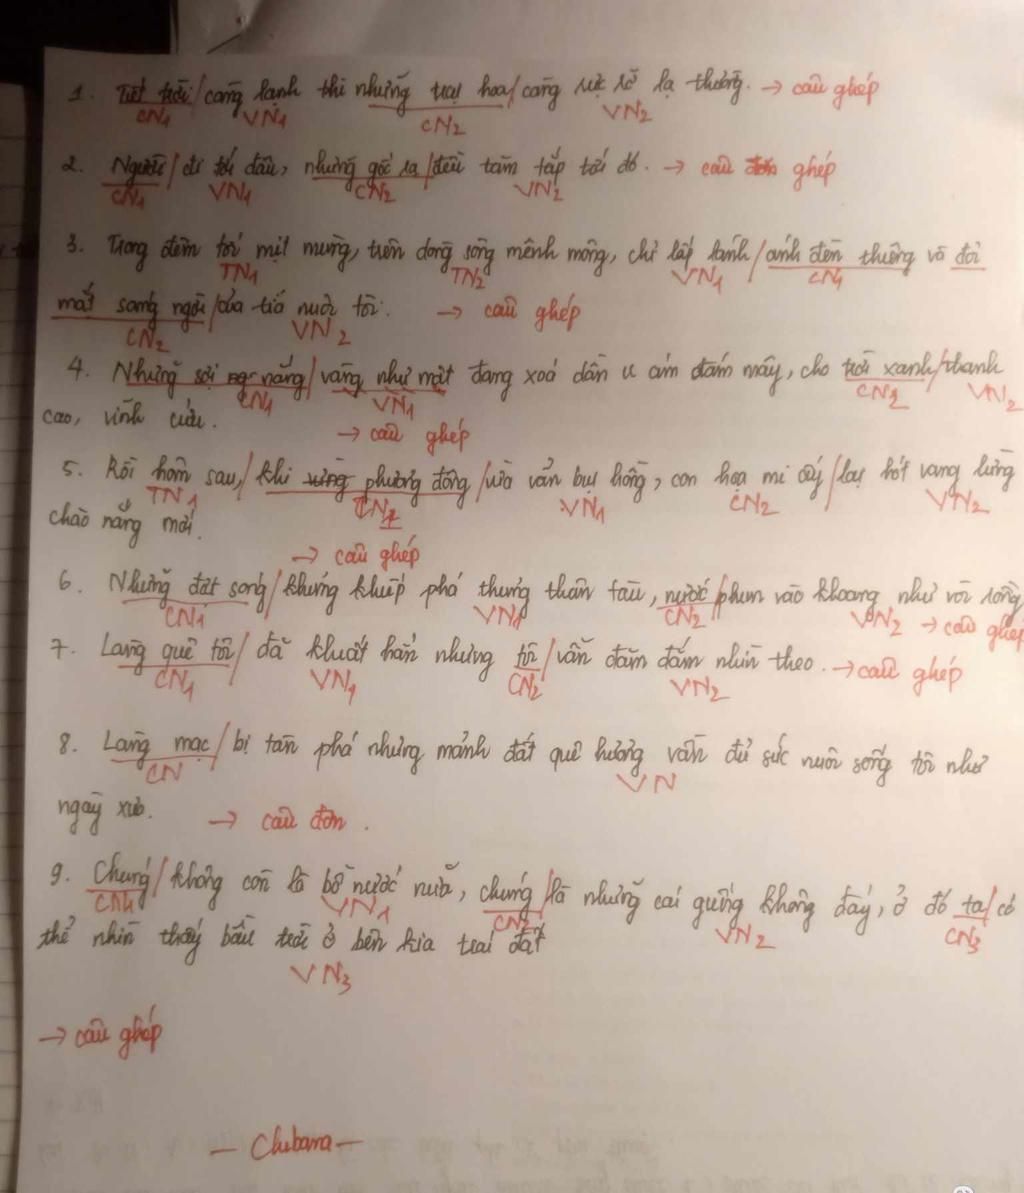 1. Tiết trời / càng lạnh thì những trại hoa / càng rực rỡ lạ thường. → câu ghép
CN1 VN1 CN2 VN2
2. Người / đi tới đâu, những gốc rạ / đều tăm tắp tới đó. → câu ghép
CN1 VN1 CN2 VN2
3. Trong đêm tối mịt mùng, trên dòng sông mênh mông, chỉ lấp lánh / ánh đèn thuyền và đôi
TN1 TN2 VN1 CN1
mắt sáng ngời / của tía nuôi tôi. → câu ghép
CN2 VN2
4. Những sợi nắng / vàng như mật đang xoá dần u ám đám mây, cho trời xanh / thanh
CN1 VN1 CN2 VN2
cao, vĩnh cửu.
→ câu ghép
5. Rồi hôm sau, / khi phương đông / vừa vẩn bụi hồng, con hoạ mi ấy / lại hót vang lừng
TN1 CN1 VN1 CN2 VN2
chào nắng mới.
→ câu ghép
6. Những đợt sóng / khủng khiếp phá thủng thân tàu, nước / phun vào khoang như vòi rồng
CN1 VN1 CN2 VN2 → câu ghép
7. Làng quê tôi / đã khuất hẳn nhưng tôi / vẫn đăm đắm nhìn theo. → câu ghép
CN1 VN1 CN2 VN2
8. Làng mạc / bị tàn phá nhưng mảnh đất quê hương vẫn đủ sức nuôi sống tôi như
CN VN
ngày xưa. → câu đơn.
9. Chúng / không còn là bồ nước nữa, chúng / là những cái giếng không đáy, ở đó ta / có
CN1 VN1 CN2 VN2 CN3
thể nhìn thấy bầu trời ở bên kia trái đất
VN3
→ câu ghép
— Chibana —